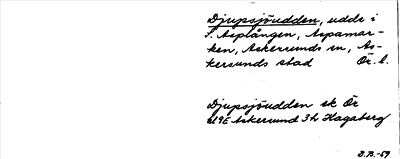 Djupsjöudden, udde i
S. Asplången, Aspamar-
ken, Askersunds sn, As-
kersunds stad Ör. l.
Djupsjöudden ek Ör
U9E Askersund 3 h Hagaberg
D.B.-59